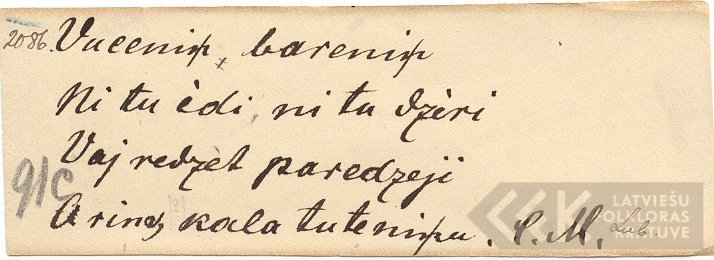 2086. Vuceniņ, bareniņ
Ni tu èdi, ni tu dzèri
Vaj redzèt paredzeji
kala tuteniņu. C. M. Lub.
LATVIEŠU
FOLKLORAS
KRĀTUVE